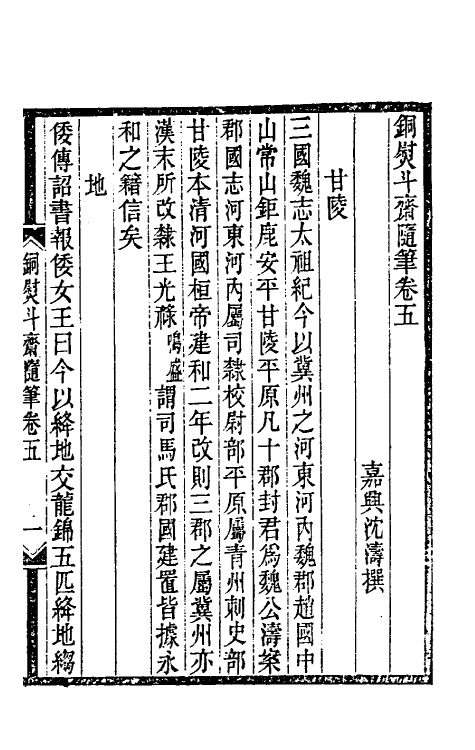 銅熨斗齋隨筆卷五
嘉興沈濤撰
甘陵
三國魏志太祖紀今以冀州之河東河內魏郡趙國中
山常山鉅鹿安平甘陵平原凡十郡封君爲魏公濤案
郡國志河東河內屬司隸校尉部平原屬青州刺史部
甘陵本清河國桓帝建和二年改則三郡之屬冀州亦
漢末所改隸王光祿鳴盛謂司馬氏郡國建置皆據永
和之籍信矣
地
倭傳詔書報倭女王曰今以絳地交龍錦五匹絳地縐
銅熨斗齋隨筆卷五
一